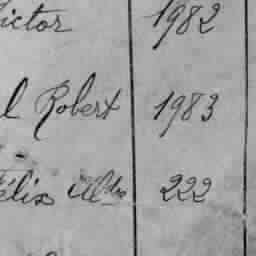 ictor 1982
l Robert 1983
élix 222